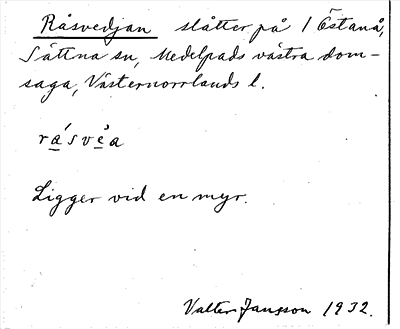 Råsvedjan slåtter på 1 Östanå,
Sättna sn, Medelpads västra dom-
saga, Västernorrlands l.
rásvèa
Ligger vid en myr.
Valter Jansson 1932.